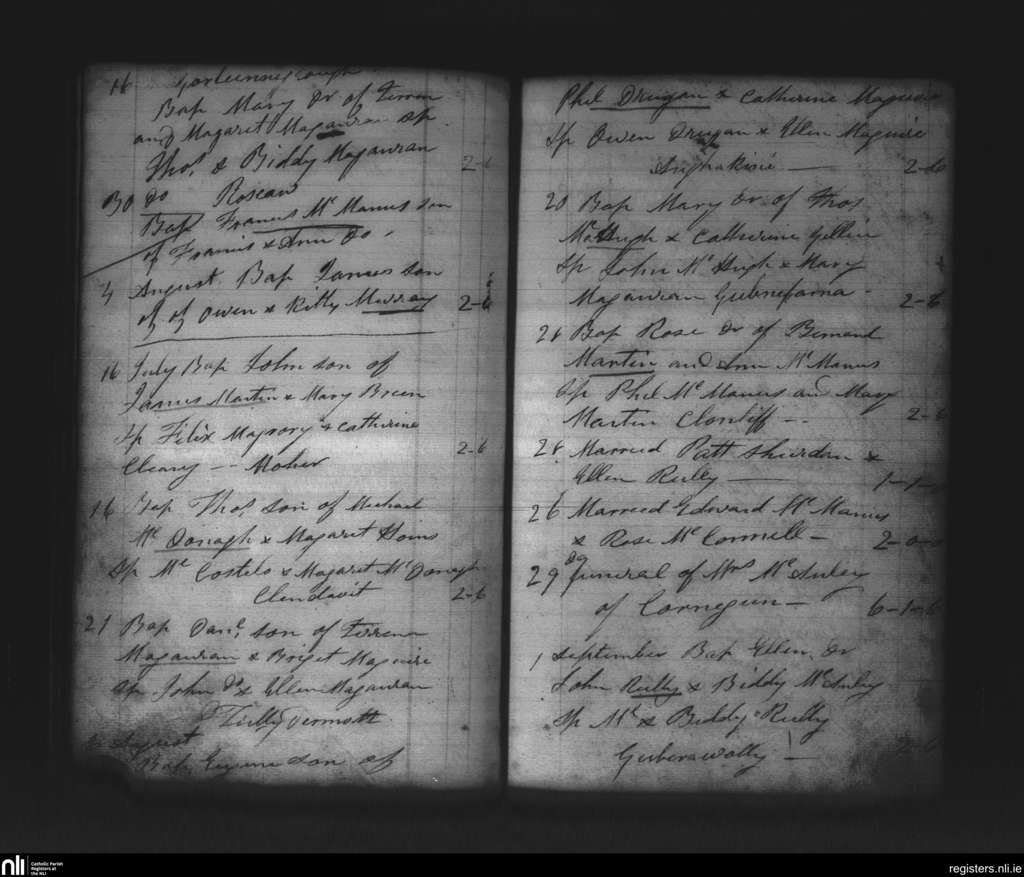 16
Bap Mary Dr of Terren
and Magaret Magauran Sp
Thos & Biddy Magauran 2-6
30 do Rosean
Bap Francis Mc Manus son
of Francis & Ann Do
4 August Bap James son
of of Owen & Kitty Murray 2-6
16 July Bap John son of
James Martin & Mary Breen
Sp Felix Magrory & Catherine
Cleary -- Moher 2-6
16 Bap Thos son of Michael
Mc Donagh & Magaret
Sp Ml Costelo & Magaret Mc Donagh
2-6
21 Bap Danl son of Terrence
Magauran & Briget Maguire
Sp John Do & Ellen Magauran
August
Bap Eugene son of
Phil Drugan & Catherine Maguire
Sp Owen Drugan & Ellen Maguire
2-6
20 Bap Mary Dr of Thos
McHugh & Catherine Gillin
Sp John Mc Hugh & Mary
Magauran 2-6
26 Bap Rose Dr of Bernard
Martin and Ann Mc Manus
Sp Phil Mc Manus and Mary
Martin Clontiff -- 2-6
28 Married Patt Sheridan &
Ellen Reilly — 1-1-
26 Married Edward Mc Manus
& Rose Mc Connell — 2-0-0
29 funeral of Mrs Mc Auley
of Cornegun — 6-1-6
1 September Bap Ellen Dr
John Reilly & Biddy McAuley
Sp Ml & Biddy Reilly
nli
Catholic Parish
Registers at
the NLI
registers.nli.ie